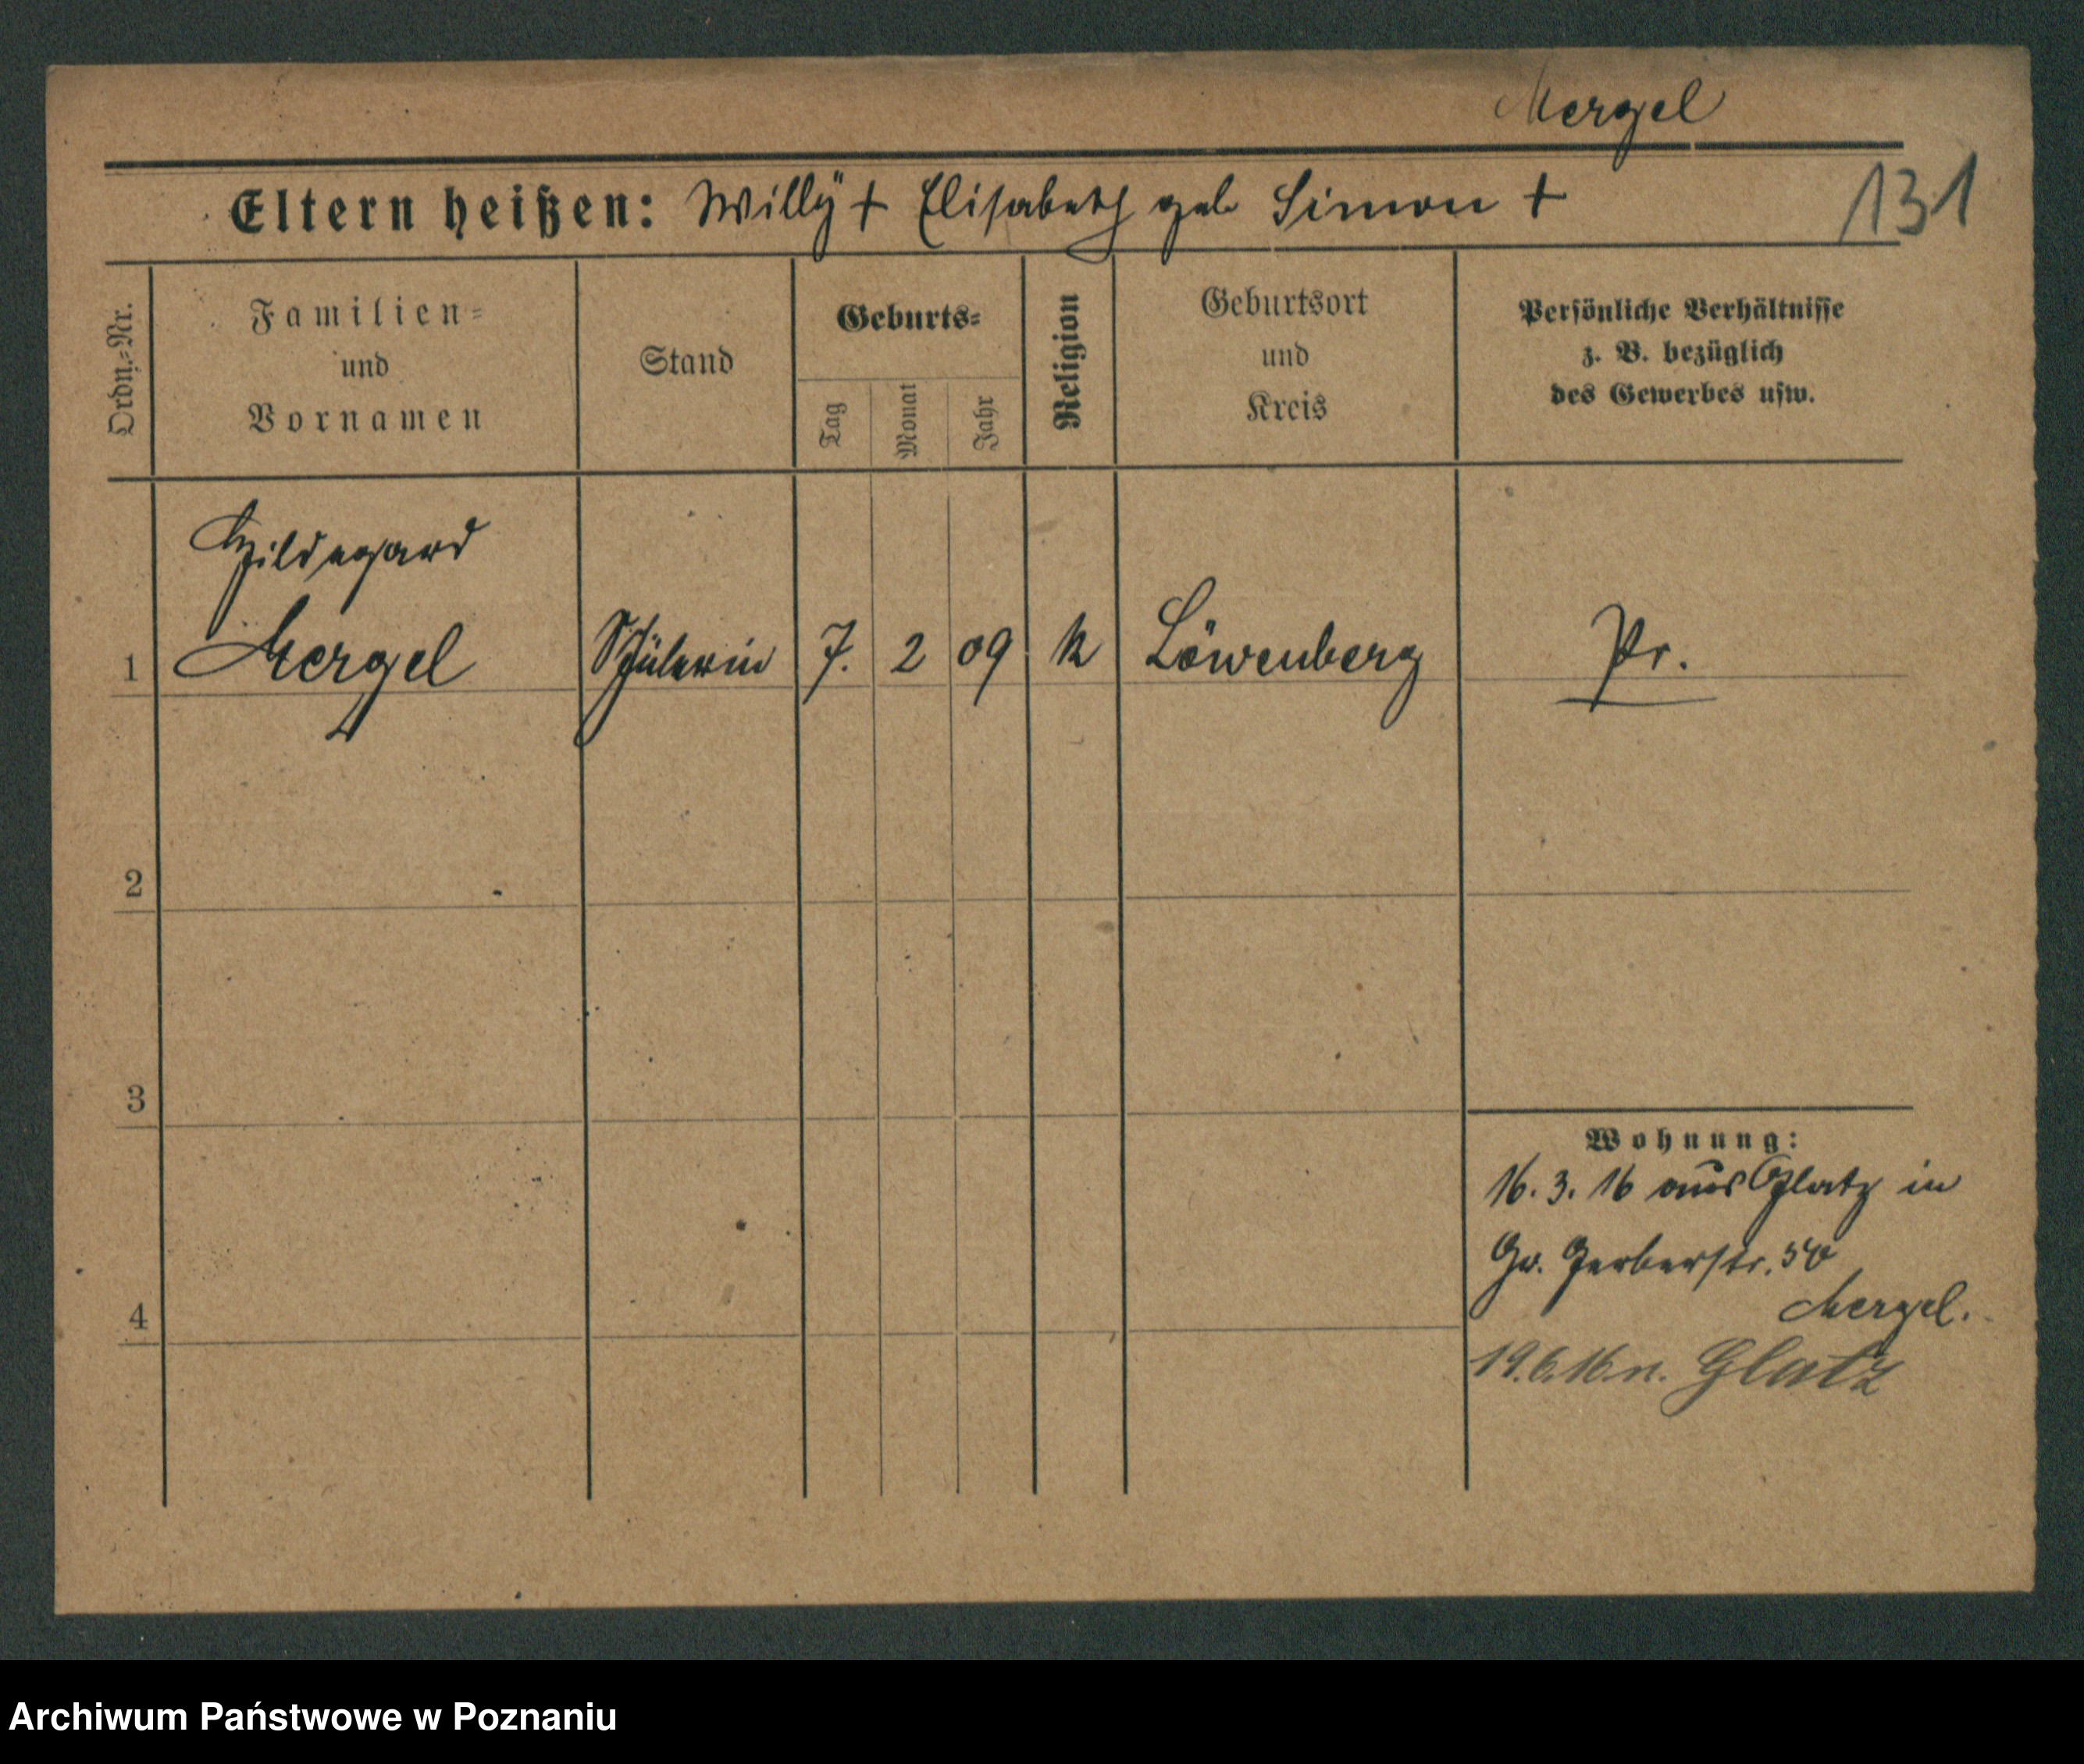 Mergel
Eltern heißen: Willÿ + Elisabeth geb Simon +
131
Ordn.-Nr.
Familien-
und
Vornamen
Stand
Geburts-
Tag
Monat
Jahr
Religion
Geburtsort
und
Kreis
Persönliche Verhältnisse
z. B. bezüglich
des Gewerbes usw.
Hildegard
1 Mergel Schülerin 7. 2 09 k Löwenberg Pr.
2
3
Wohnung:
16. 3. 16 aus Glatz in
Gr. Gerberstr.
Mergel.
4
19.6.16 n. Glatz
Archiwum Państwowe w Poznaniu